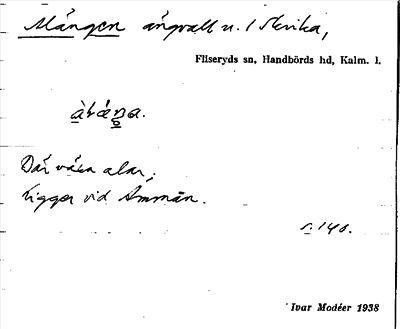 Alången ängvall u. / Skrika,
Fliseryds sn, Handbörds hd, Kalm. l.
Där växa alar;
ligger vid Emmån.
s. 140.
Ivar Modéer 1938